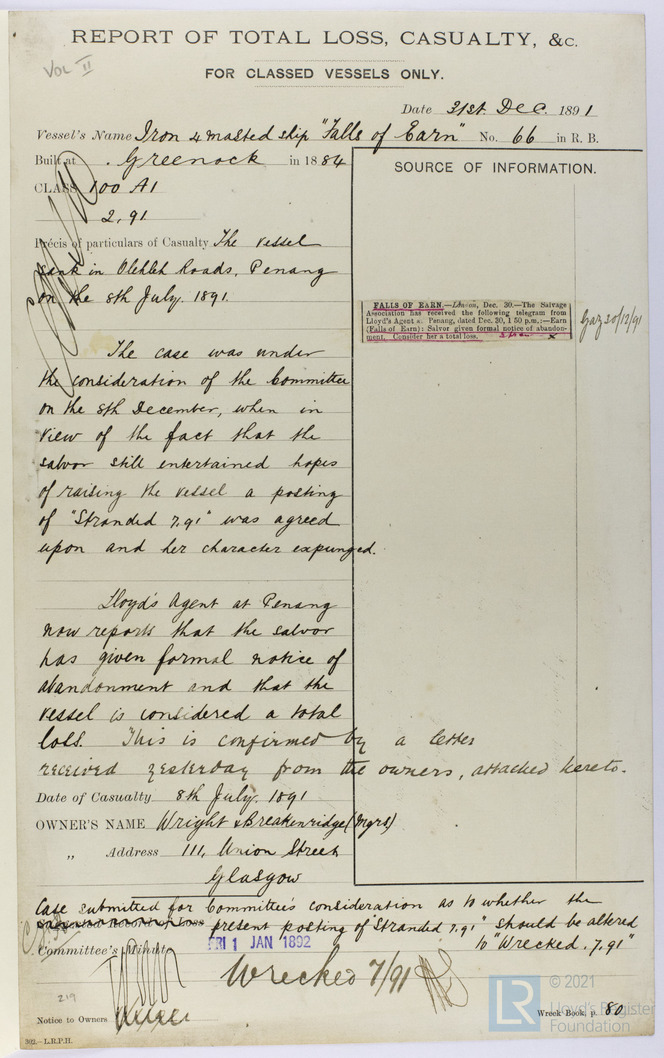 REPORT OF TOTAL LOSS, CASUALTY, &c.
VOL II
FOR CLASSED VESSELS ONLY.
Date 31st. Dec. 1891
Vessel's Name Iron 4 masted ship "Falls of Earn" No. 66 in R. B.
Built at Greenock in 1884
CLASS 100 A1
2,91
Précis of particulars of Casualty The vessel
sank in Olehleh Roads, Penang
on the 8th July. 1891.
The case was under
the consideration of the Committee
on the 8th December, when in
view of the fact that the
salvor still entertained hopes
of raising the vessel a posting
of "Stranded 7,91" was agreed
upon and her character expunged.
Lloyd's Agent at Penang
now reports that the salvor
has given formal notice of
abandonment and that the
vessel is considered a total
loss. This is confirmed by a letter
received yesterday from the owners, attached hereto.
SOURCE OF INFORMATION.
FALLS OF EARN.—London, Dec. 30.—The Salvage
Association has received the following telegram from
Lloyd's Agent at Penang, dated Dec. 30, 1 50 p.m.:—Earn
(Falls of Earn): Salvor given formal notice of abandon-
ment. Consider her a total loss. x
Gaz 30/12/91
Date of Casualty 8th July. 1891
OWNER'S NAME Wright & Breakenridge (Mgrs)
" Address 111, Union Street
Glasgow
Case submitted for Committee's consideration as to whether the
present posting of "Stranded 7,91" should be altered
to "Wrecked. 7,91"
Committee's Minute
FRI 1 JAN 1892
Wrecked 7/91
219
Notice to Owners
Wreck Book, p. 80
302.—L.R.P.H.
LR
© 2021
Lloyd's Register
Foundation